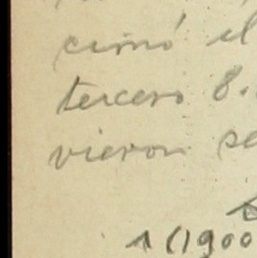 cimó el
tercero 8.
vieron se
1 (1900